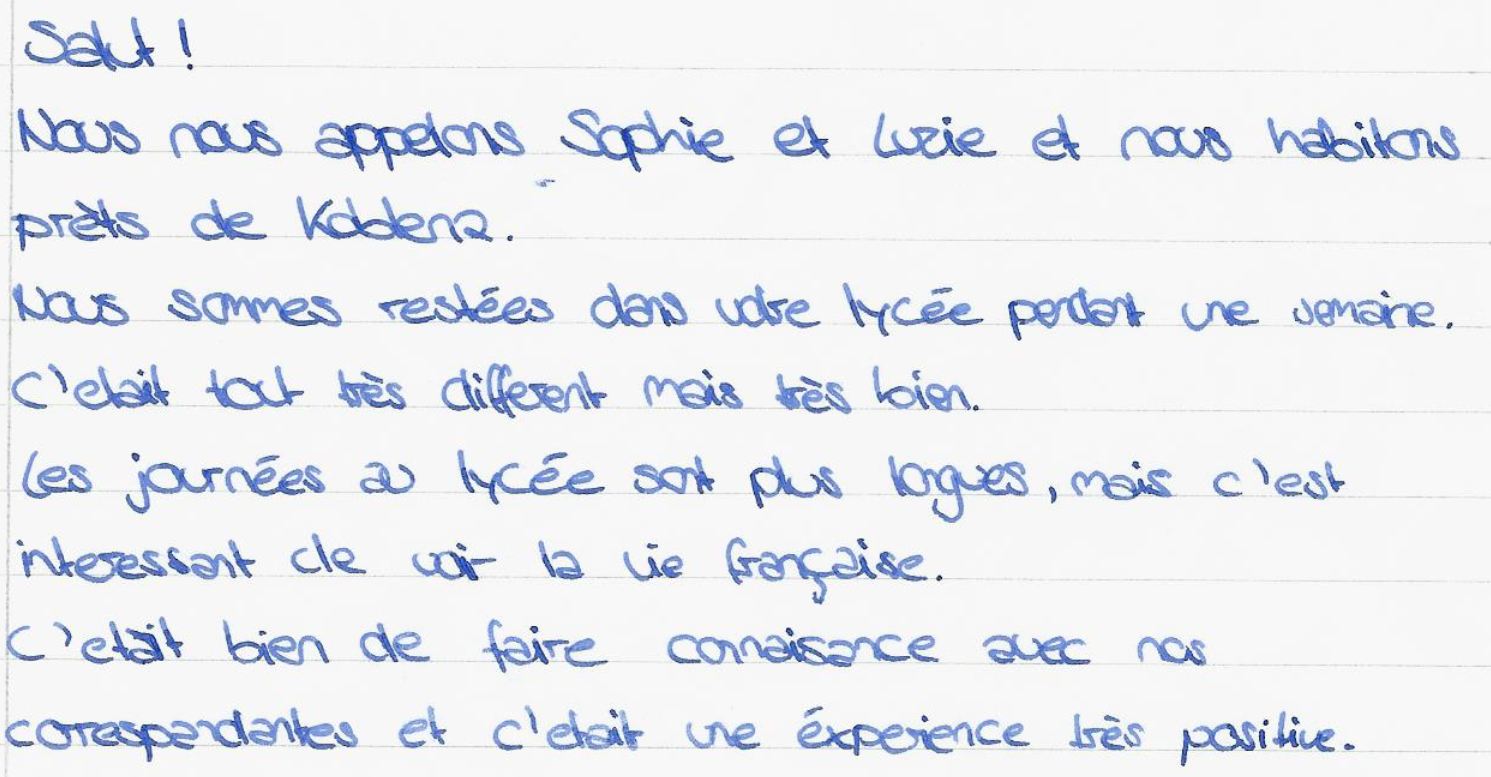 Salut !
Nous nous appelons Sophie et Luzie et nous habitons
prèts de Koblenz.
Nous sommes restées dans votre lycée pendant une semaine.
C'etait tout très different mais très bien.
Les journées au lycée sont plus longues, mais c'est
interessant de voir la vie française.
C'etait bien de faire connaisance avec nos
correspondantes et c'etait une éxperience très positive.